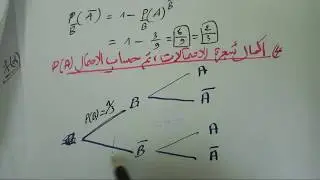 P_B(Ā) = 1 - P_B(A)
= 1 - 3/9 = 6/9 = 2/3
اكمال شجرة الاحتمالات، ثم حساب الاحتمال P(A)
A
P(B)= B
Ā
A
B̄
Ā